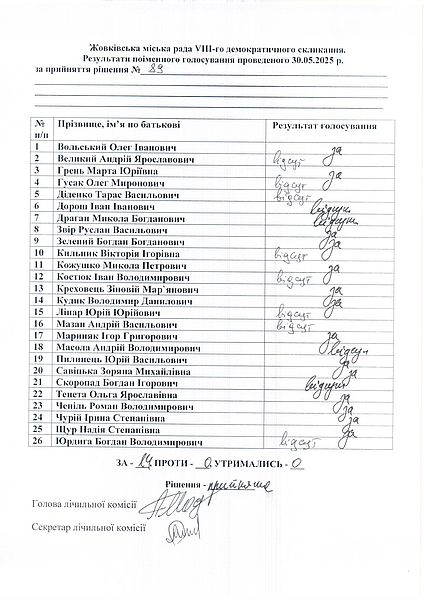 Жовківська міська рада VIII-го демократичного скликання.
Результати поіменного голосування проведеного 30.05.2025 р.
за прийняття рішення № 89
№ п/п Прізвище, ім’я по батькові Результат голосування
1 Вольський Олег Іванович за
2 Великий Андрій Ярославович відсут
3 Грень Марта Юріївна за
4 Гусак Олег Миронович відсут
5 Діденко Тарас Васильович відсут
6 Дорош Іван Іванович відсутн
7 Драган Микола Богданович відсутн
8 Звір Руслан Васильович за
9 Зелений Богдан Богданович за
10 Кильник Вікторія Ігорівна відсут
11 Кожушко Микола Петрович за
12 Костюк Іван Володимирович відсут
13 Креховець Зіновій Мар`янович за
14 Кудик Володимир Данилович за
15 Ліпар Юрій Юрійович відсут
16 Мазан Андрій Васильович відсут
17 Мариняк Ігор Григорович за
18 Масола Андрій Володимирович відсут
19 Пилипець Юрій Васильович за
20 Савіцька Зоряна Михайлівна за
21 Скоропад Богдан Ігорович відсутн
22 Тенета Ольга Ярославівна за
23 Чепіль Роман Володимирович за
24 Чурій Ірина Степанівна за
25 Щур Надія Степанівна за
26 Юрдига Богдан Володимирович відсут
ЗА - 14 ПРОТИ - 0 УТРИМАЛИСЬ - 0
Рішення - прийнято
Голова лічильної комісії
Секретар лічильної комісії